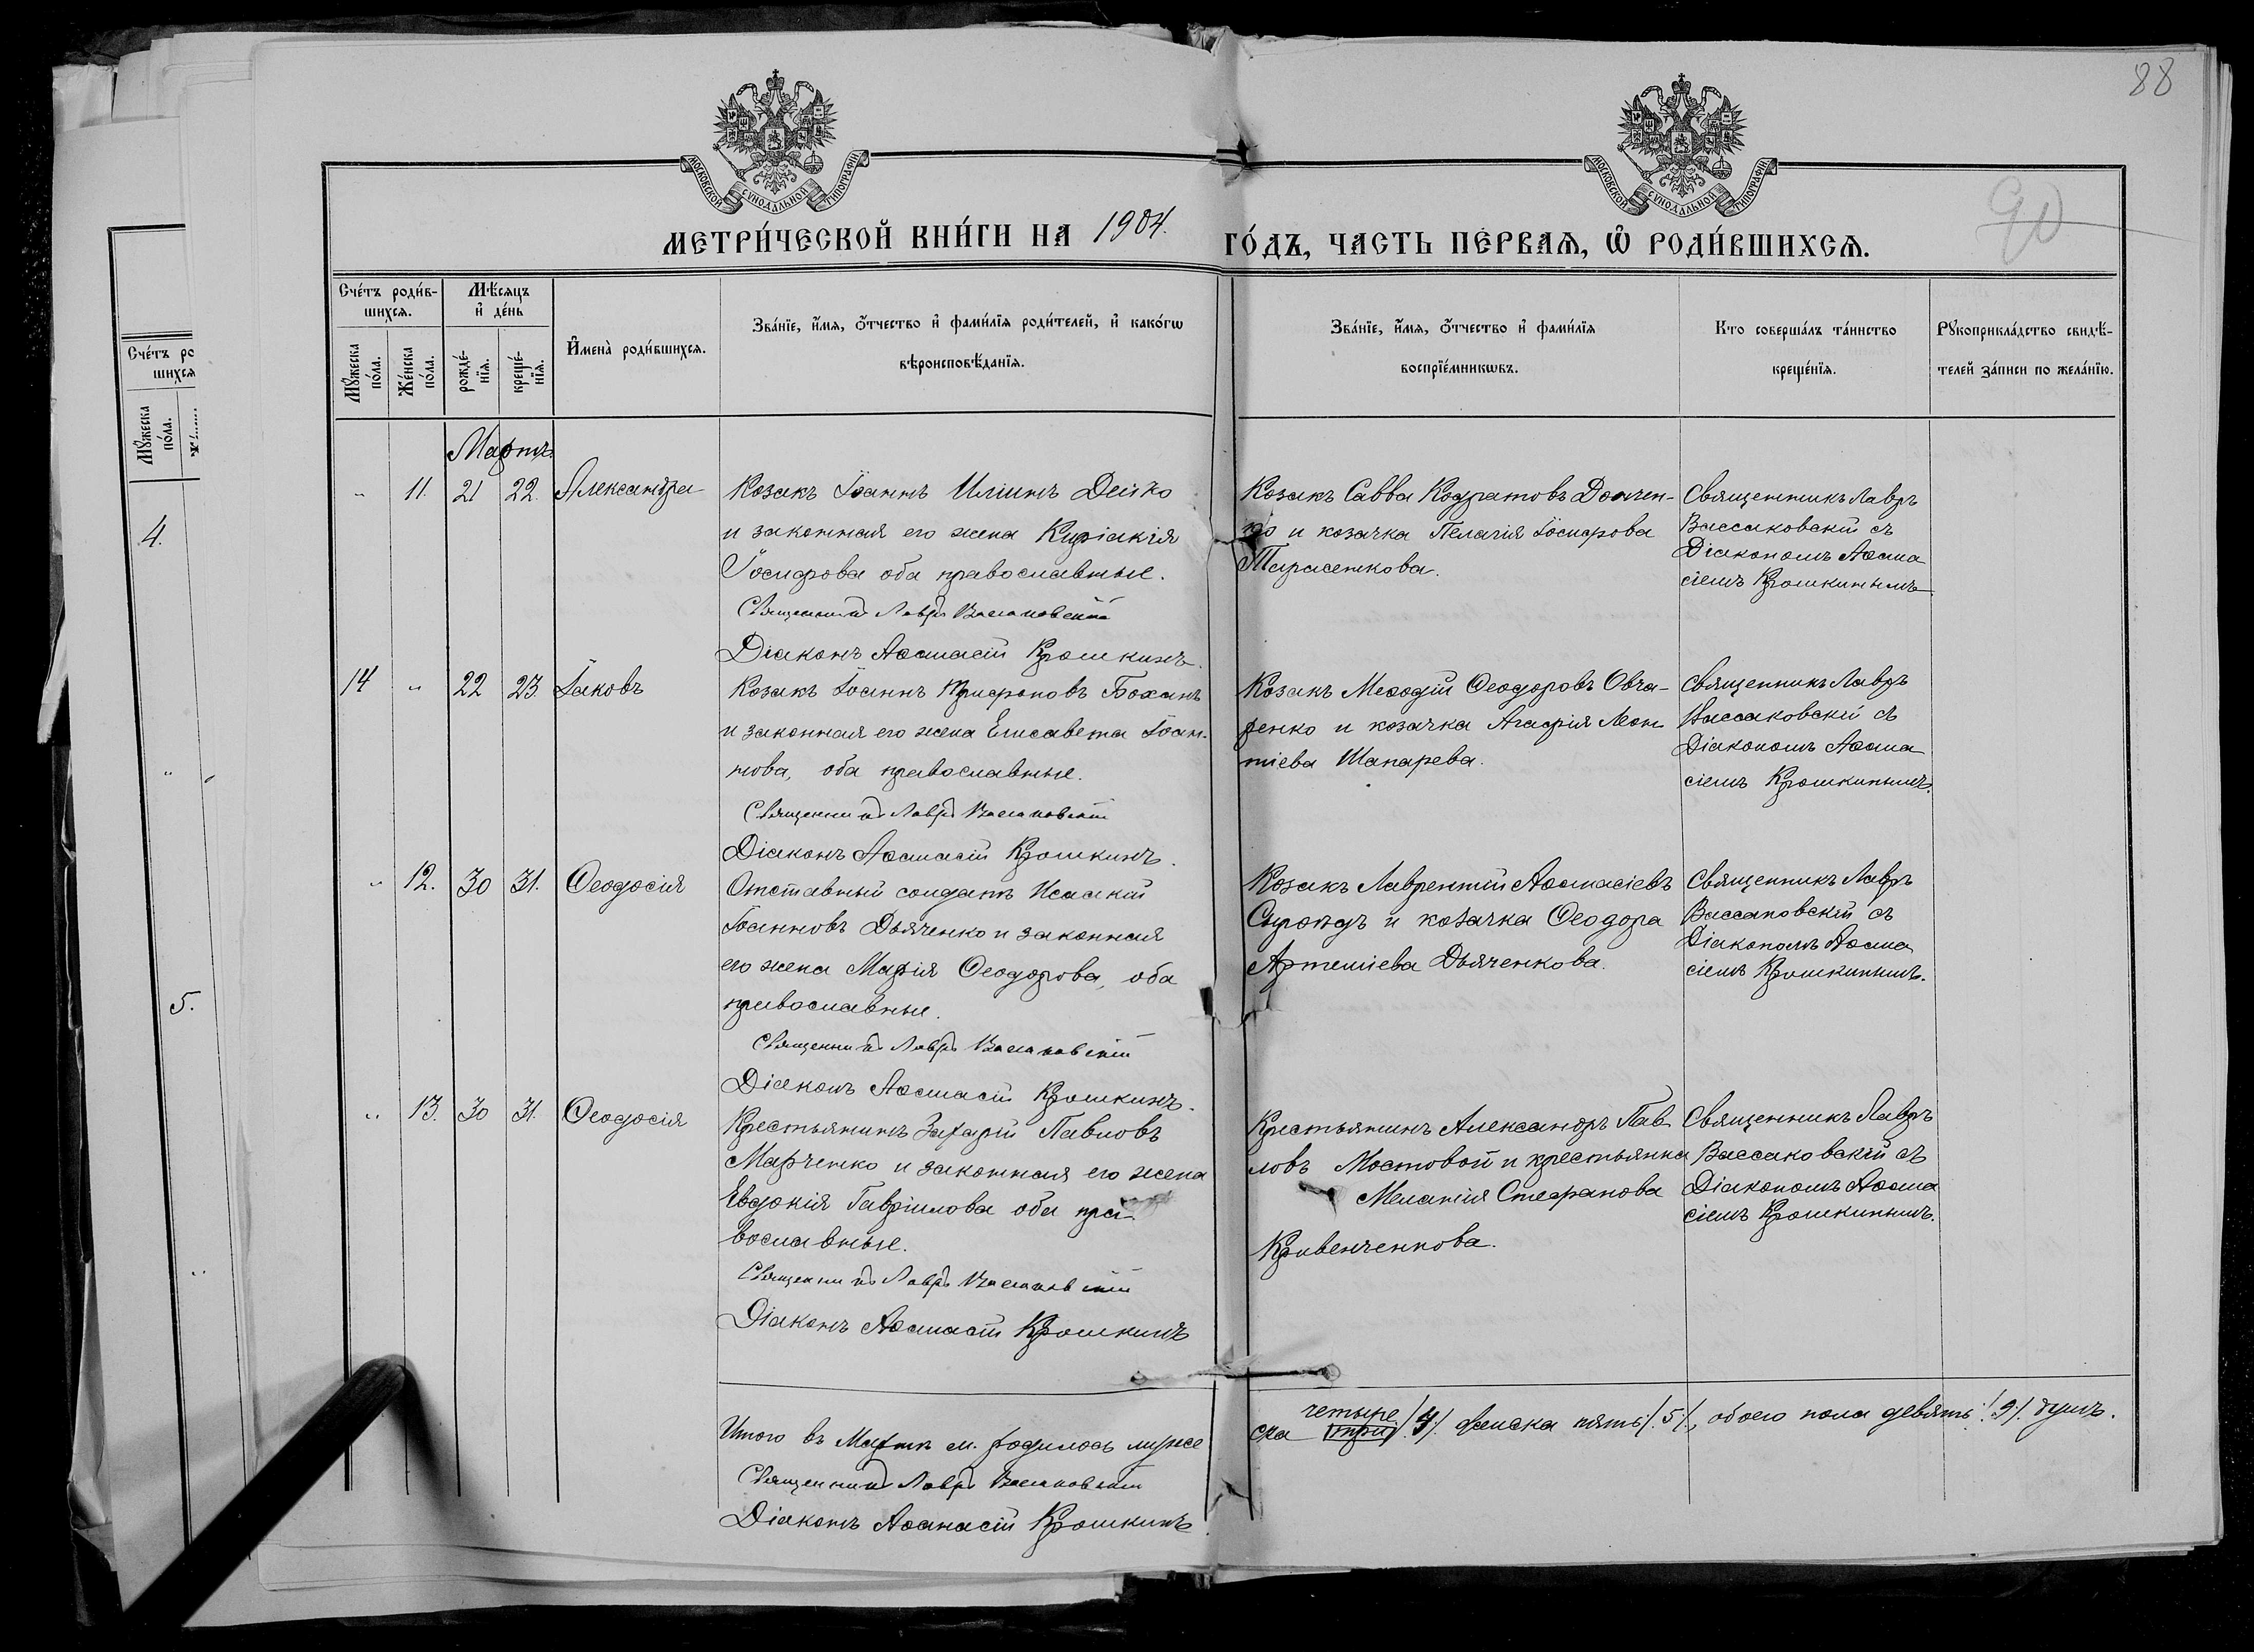 88
90
МОСКОВСКОЙ СѴНОДАЛЬНОЙ ТИПОГРАФІИ
МОСКОВСКОЙ СѴНОДАЛЬНОЙ ТИПОГРАФІИ
МЕТРИ́ЧЕСКОЙ КНИ́ГИ НА 1904. ГО́ДЪ, ЧАСТЬ ПЕ́РВАѦ, Ѡ҆ РОДИ́ВШИХСѦ.
Сче́тъ роди́в-
шихсѧ.
Мꙋ́жеска по́ла.
Же́нска по́ла.
Мѣ́сѧцъ и҆ де́нь
рожде́-нїѧ.
креще́-нїѧ.
И҆мена̀ роди́вшихсѧ.
Зва́нїе, и҆́мѧ, ѻ҆́тчество и҆ фами́лїѧ роди́телей, и҆ како́гѡ
вѣроисповѣ́данїѧ.
Зва́нїе, и҆́мѧ, ѻ҆́тчество и҆ фами́лїѧ
воспрїе́мникѡвъ.
Кто̀ соверша́лъ та́инство
креще́нїѧ.
Рꙋкоприкла́дство свидѣ́-
телей за́писи по жела́нїю.
Сче́тъ ро
шихсѧ
Мꙋ́жеска по́ла.
4.
5.
Мартъ.
" 11. 21 22. Александра
Козакъ Іоаннъ Иліинъ Дейко
и законная его жена Киріакія
Іосифова оба православные.
Священникъ Лавръ Вассаковскій
Діаконъ Аѳанасій Крошкинъ.
Козакъ Савва Кодратовъ Домчен-
ко и козачка Пелагія Іосифова
Тарасенкова.
Священникъ Лавръ
Вассаковскій съ
Діакономъ Аѳана
сіемъ Крошкинымъ.
14 " 22 23 Іаковъ
Козакъ Іоаннъ Трифоновъ Боханъ
и законная его жена Елисавета Іоан-
нова, оба православные.
Священникъ Лавръ Вассаковскій
Діаконъ Аѳанасій Крошкинъ.
Козакъ Меѳодій Ѳеодоровъ Овча-
ренко и козачка Агафія Леон
тіева Шапарева.
Священникъ Лавръ
Вассаковскій съ
Діакономъ Аѳана
сіемъ Крошкинымъ.
" 12. 30 31. Ѳеодосія
Отставный солдатъ Исаакій
Іоанновъ Дьяченко и законная
его жена Марія Ѳеодорова, оба
православные.
Священникъ Лавръ Вассаковскій
Діаконъ Аѳанасій Крошкинъ.
Козакъ Лаврентій Аѳанасіевъ
Сыроѣдъ и козачка Ѳеодора
Артеміева Дьяченкова.
Священникъ Лавръ
Вассаковскій съ
Діакономъ Аѳана
сіемъ Крошкинымъ.
" 13. 30 31. Ѳеодосія
Крестьянинъ Захарій Павловъ
Марченко и законная его жена
Евдокія Гавріилова оба пра-
вославные.
Священникъ Лавръ Вассаковскій
Діаконъ Аѳанасій Крошкинъ
Крестьянинъ Александръ Пав
ловъ Мостовой и крестьянка
Меланія Стефанова
Кривенченкова.
Священникъ Лавръ
Вассаковскій съ
Діакономъ Аѳана
сіемъ Крошкинымъ.
Итого въ Мартѣ м. родилось муже
четыре
ска три /4/. женска пять /5/, обоего пола девять /9/. душъ.
Священникъ Лавръ Вассаковскій
Діаконъ Аѳанасій Крошкинъ